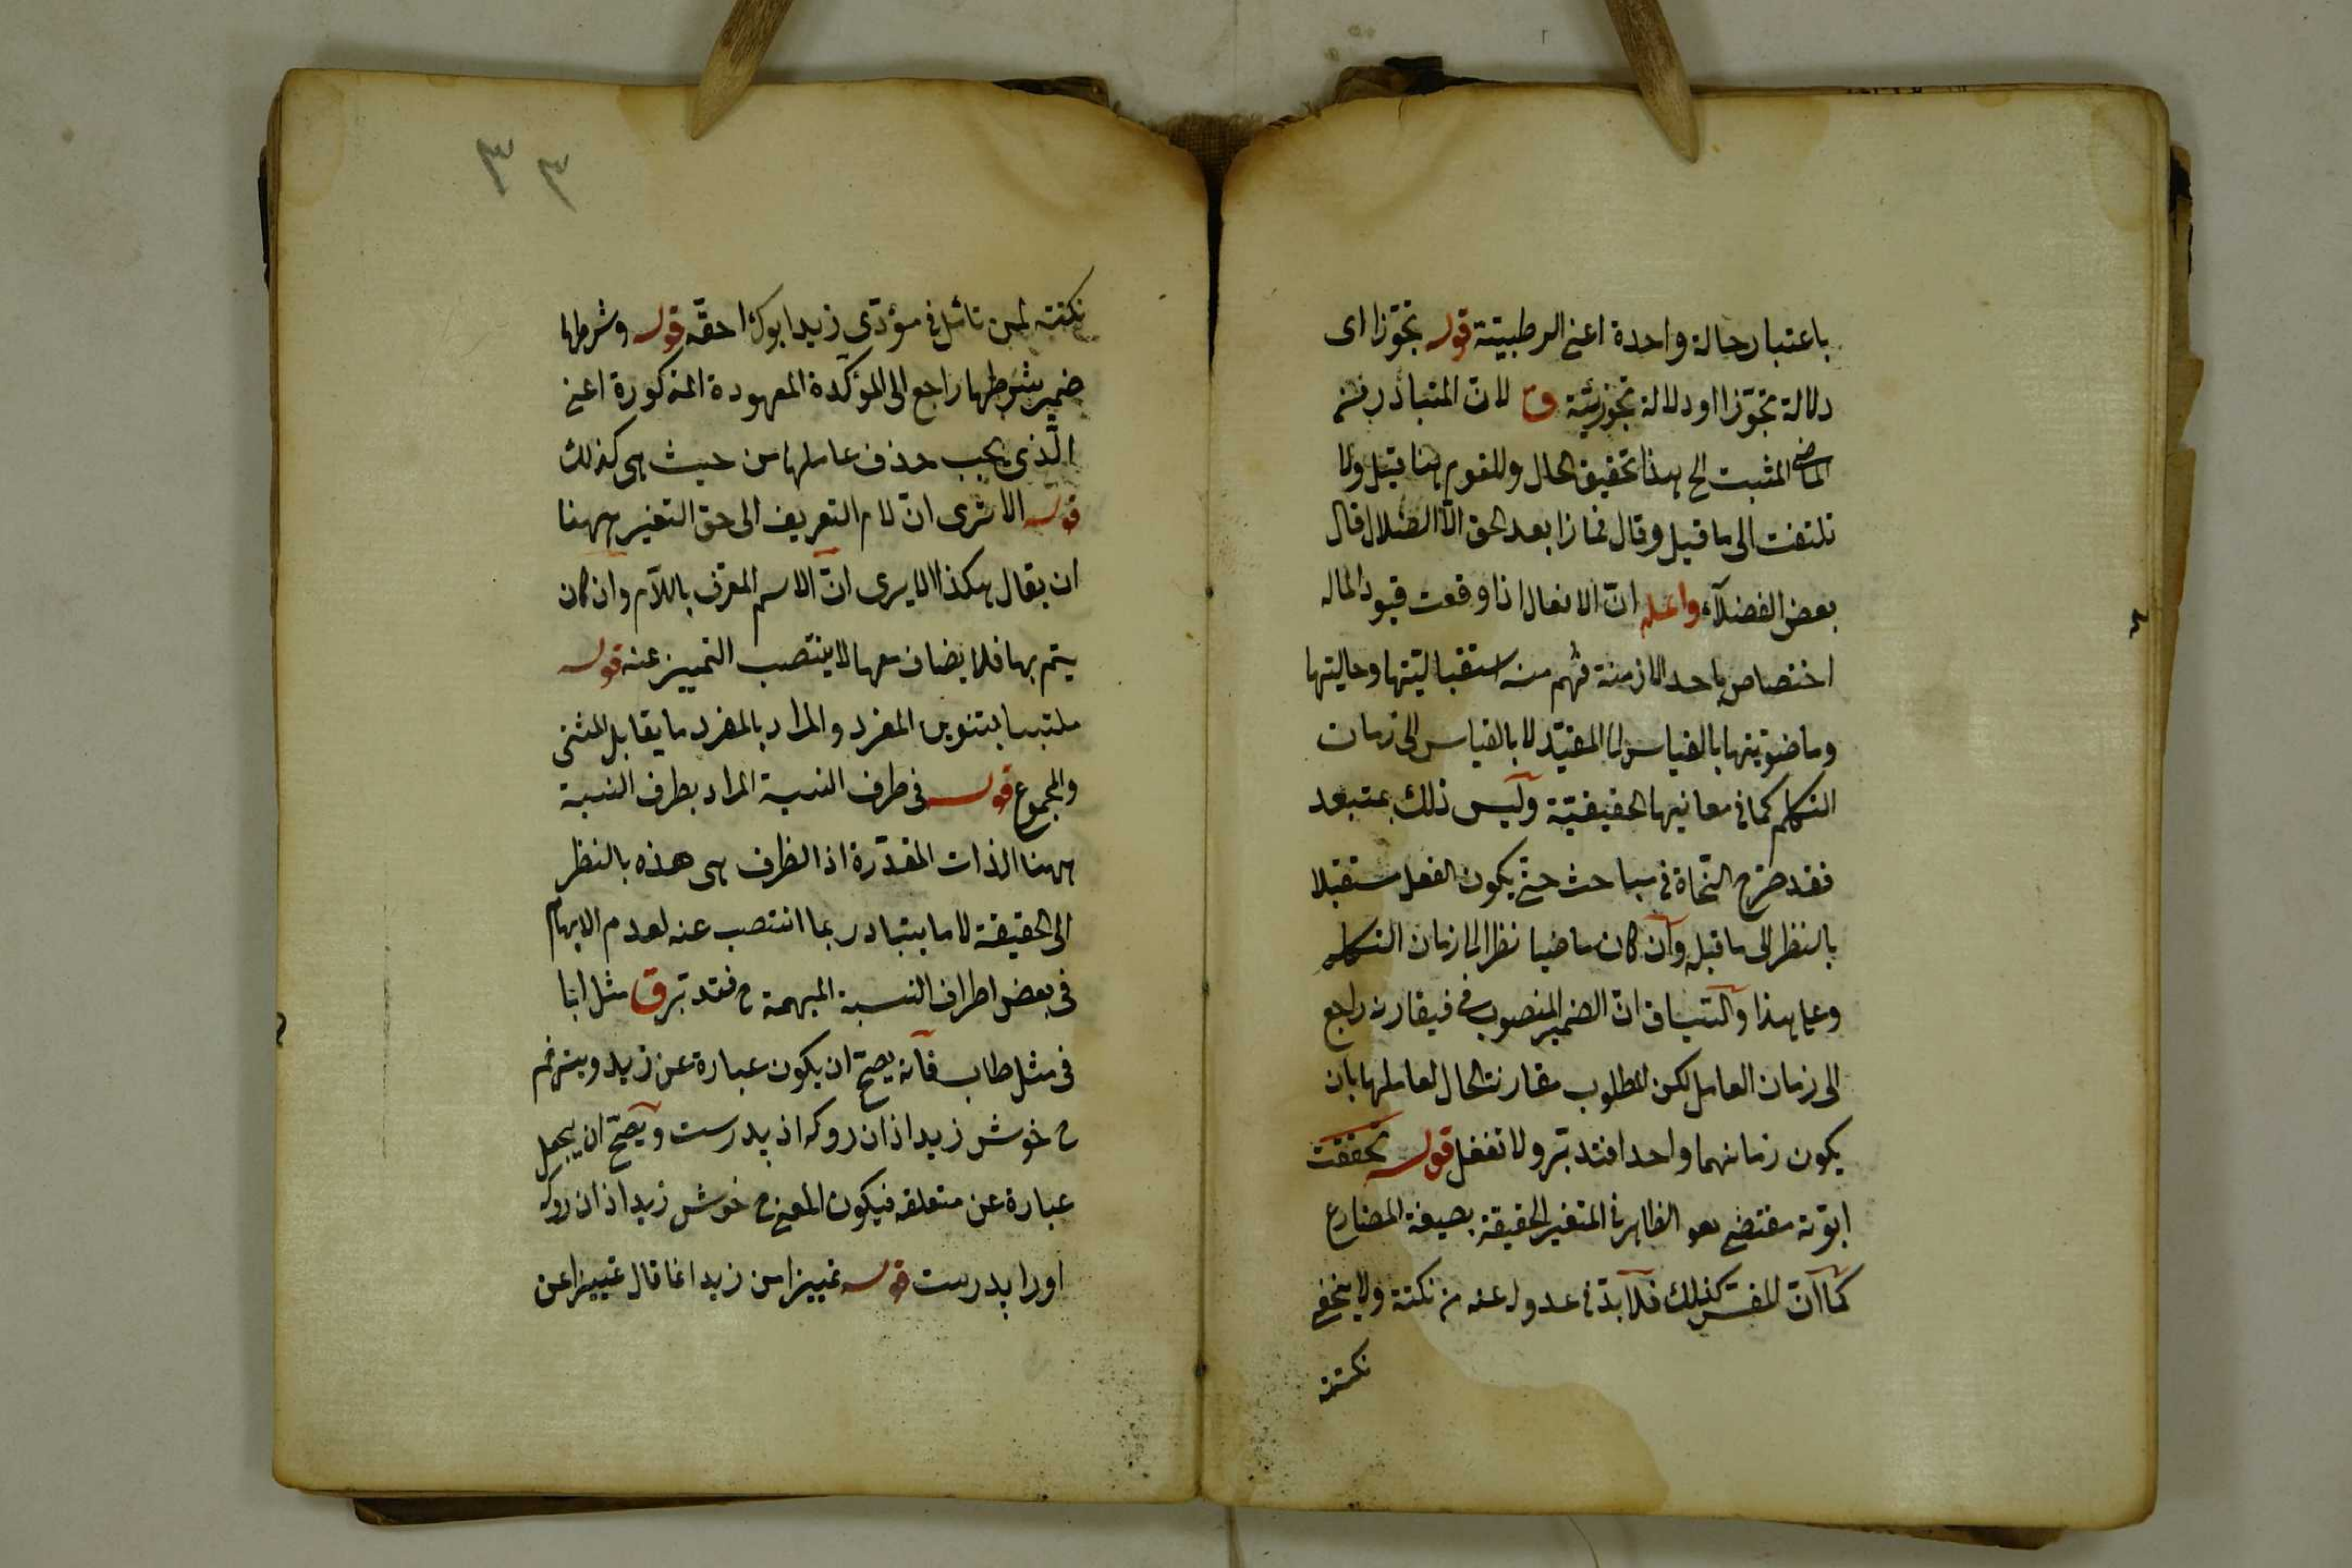 باعتبار حالة واحدة اعنى الرطبية قوله تجوزا اى
دلالة تجوزا او دلالة تجوزيّة ق لان المتبادر من
الماضى المثبت الخ هذا تحقيق الحال وللقوم هنا قيل ولا
تلتفت الى ما قيل وقال فماذا بعد الحق الّا الضلال قال
بعض الفضلآء واعلم انّ الافعال اذا وقعت قيودا لماله
اختصاص باحد الازمنة فهم منه استقباليتها وحاليتها
وماضويتها بالقياس الى المقيّد لا بالقياس الى زمان
التكلم كما فى معانيها الحقيقيّة وليس ذلك بمتبعد
فقد صرّح النّحاة فى مباحث حتى يكون الفعل مستقبلا
بالنظر الى ما قبله وان كان ماضيا نظرا الى زمان التكلم
وعلى هذا والسّياق انّ الضمير المنصوب فى فيقارنه راجع
الى زمان العامل لكن المطلوب مقارنة الحال لعاملها بان
يكون زمانهما واحدا فتدبّر ولا تغفل قوله تحققت
ابوّته مقتضى هو الظاهر فى المتغير الحقيقة بصيغة المضارع
كما انّ المفسّر كذلك فلا بدّ فى عدوله عنه من نكتة ولا يخفى
نكتته
٣٣
نكتته لمن تامّل فى مؤدّى زيد ابوك احقّه قوله وشرطها
ضمير شرطها راجع الى المؤكدة المعهودة المذكورة اعنى
الّذى يجب حذف عاملها من حيث هى كذلك
قوله الا ترى انّ لام التعريف الى حق التغير ههنا
ان يقال هكذا الا يرى انّ الاسم المعرّف باللّام وان كان
يتم بها فلا يضاف معها لا ينتصب التمييز عنه قوله
ملتبسا بتنوين المفرد والمراد بالمفرد ما يقابل المثنى
والمجموع قوله فى طرف النسبة المراد بطرف النسبة
ههنا الذات المقدّرة اذ الظرف هى هذه بالنظر
الى الحقيقة لا ما يتبادر بما انتصب عنه لعدم الابهام
فى بعض اطراف النسبة المبهمة ح فتدبّر ق مثل ابا
فى مثل طاب فآنه يصحّ ان يكون عبارة عن زيد
ح خوش زيد از ان رو كه او پدرست ويصحّ ان يجعل
عبارة عن متعلقه فيكون المعنى ح خوش زيد از ان رو كه
اورا پدرست قوله تمييزا من زيد انما قال تمييزا عن